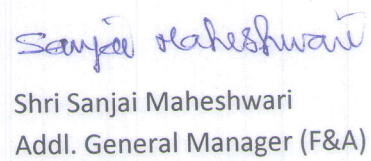 Sanjai Maheshwari
Shri Sanjai Maheshwari
Addl. General Manager (F&A)